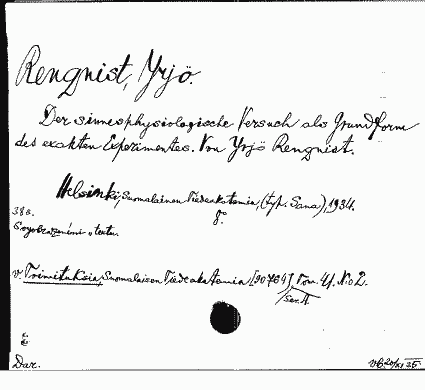 Rengnist, Yrjö.
Der sinnesphysiologische Versuch als Grundform
des exakten Experimentes. Von Yrjö Rengnist.
Helsinki, Suomalainen Tiedeakatemia, (typ. Sana), 1934.
38 s. 8°
S vyobrazeními v textu.
v. Toimituksia, Suomalaisen Tiedeakatemia [90764] Tom. 41. No 2.
Ser. A
Dar.